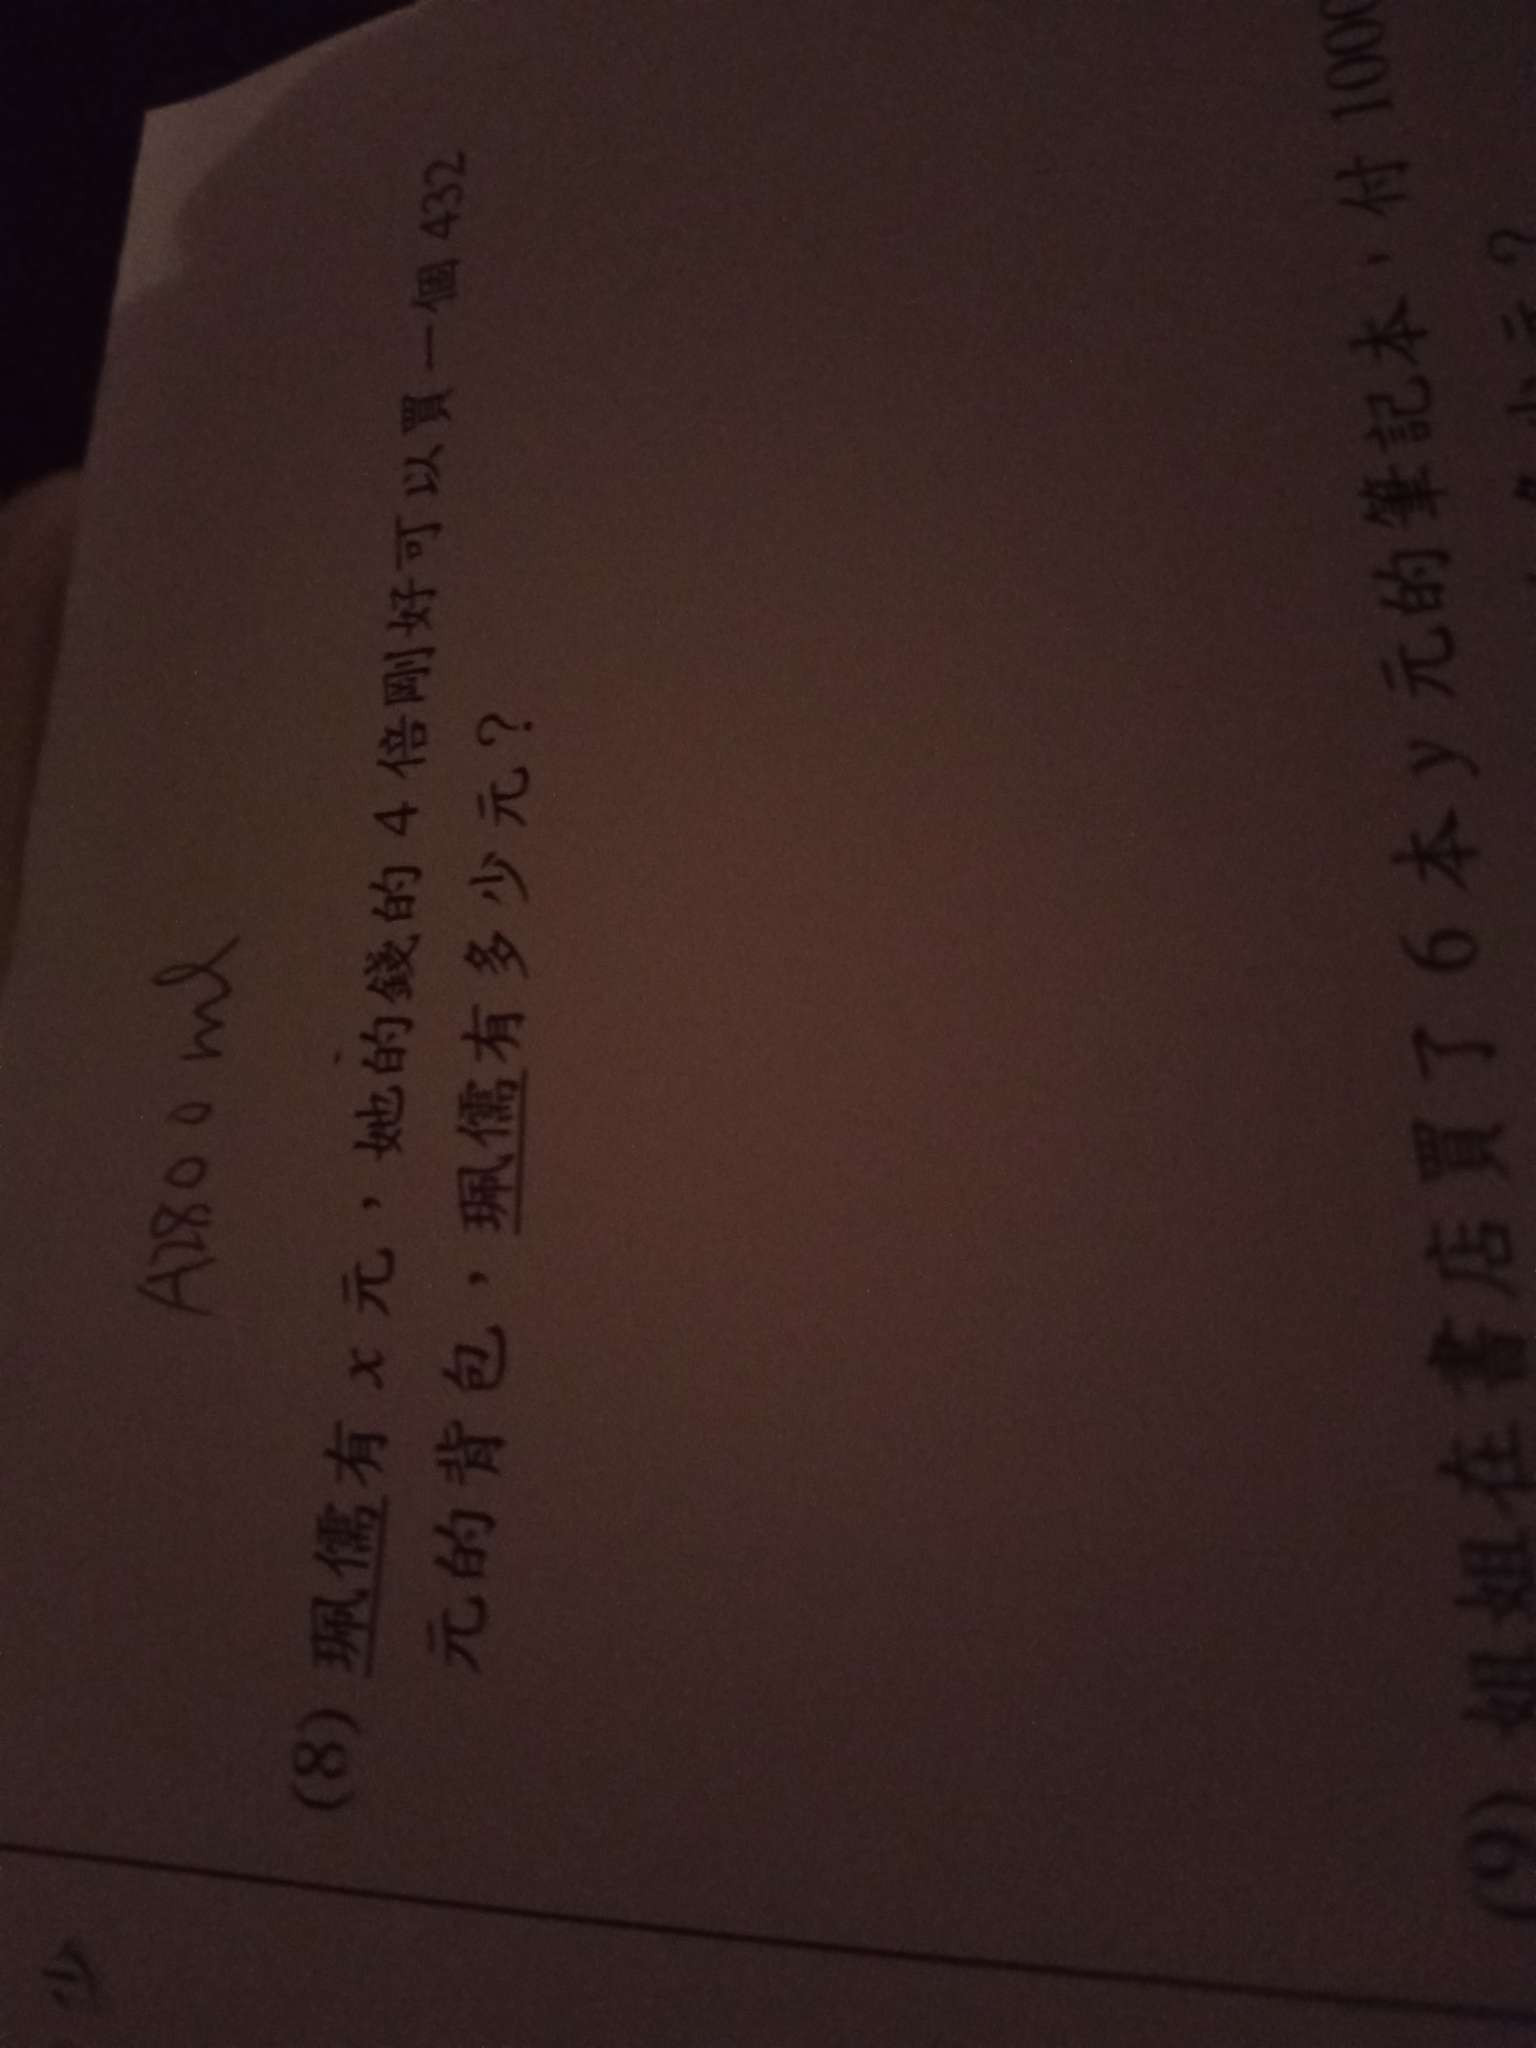 少
A 2800 ml
(8) 珮儒有 x 元，她的錢的 4 倍剛好可以買一個 432
元的背包，珮儒有多少元？
(9) 姐姐在書店買了 6 本 y 元的筆記本，付 1000
多少元？